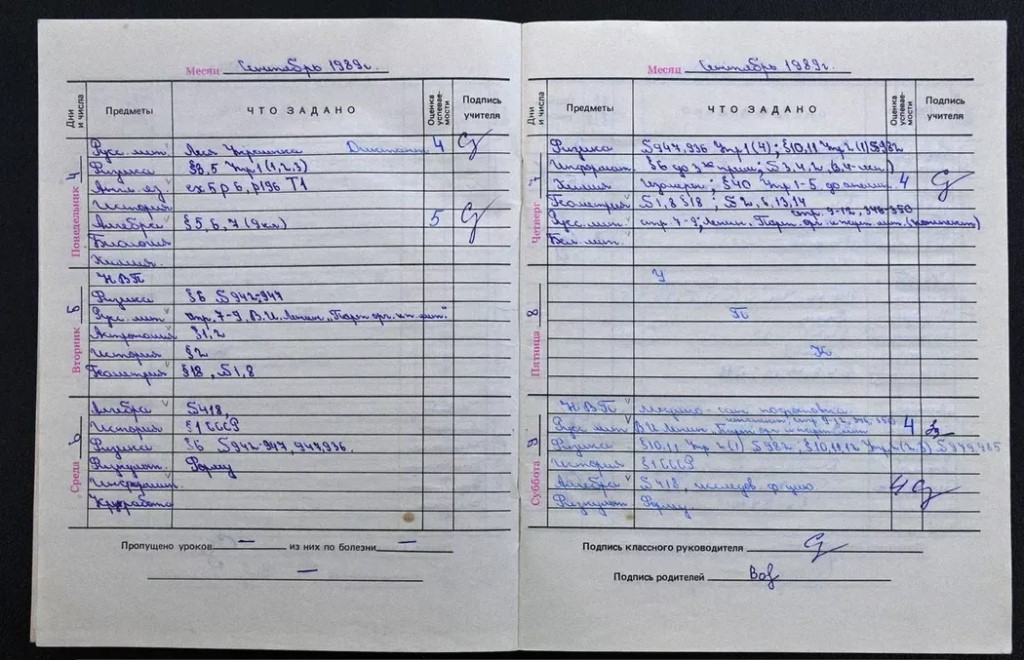 Месяц Сентябрь 1989г.
Дни и числа Предметы ЧТО ЗАДАНО Оценка успевае-мости Подпись учителя
Понедельник 4
Русс. лит. Леся Украинка 4
Физика §3,5 Упр1(1,2,3)
Англ. яз. ex5 p6, p196 T1
История
Алгебра §5,6,7 (9кл) 5
Биология
Химия
Вторник 5
НВП
Физика §6 S942-947
Русс. лит стр. 7-9, В.И. Ленин „Парт орг. и п. лит."
Астрономия §1,2
История §2
Геометрия §18, S1,8
Среда 6
Алгебра S418,
История §1 СССР
Физика §6 S942-947, 947,936.
Физкульт. Форму
Информат.
Худработа
Пропущено уроков — из них по болезни —
—
Месяц Сентябрь 1989г.
Дни и числа Предметы ЧТО ЗАДАНО Оценка успевае-мости Подпись учителя
Четверг 7
Физика S947,936 Упр1(4); §10,11 Упр2(1) S982
Информат. §6 до 3
Химия §40 Упр 1-5 4
Геометрия S1,8 §18; S2, 6, 13, 14
стр. 9-12, 346-350
Русс. лит. стр. 7-9, Ленин. Парт. орг. и парт. лит. (конспект)
Бел. лит.
Пятница 8
У
П
К
Суббота 9
НВП Медико-сан. подготовка
Русс. лит В.И. Ленин, 4
Физика §10,11 Упр 2(1) S982, §10,11,12
История §1 СССР
Алгебра S418, исследов. ф-цию 4
Физкульт Форму
Подпись классного руководителя
Подпись родителей